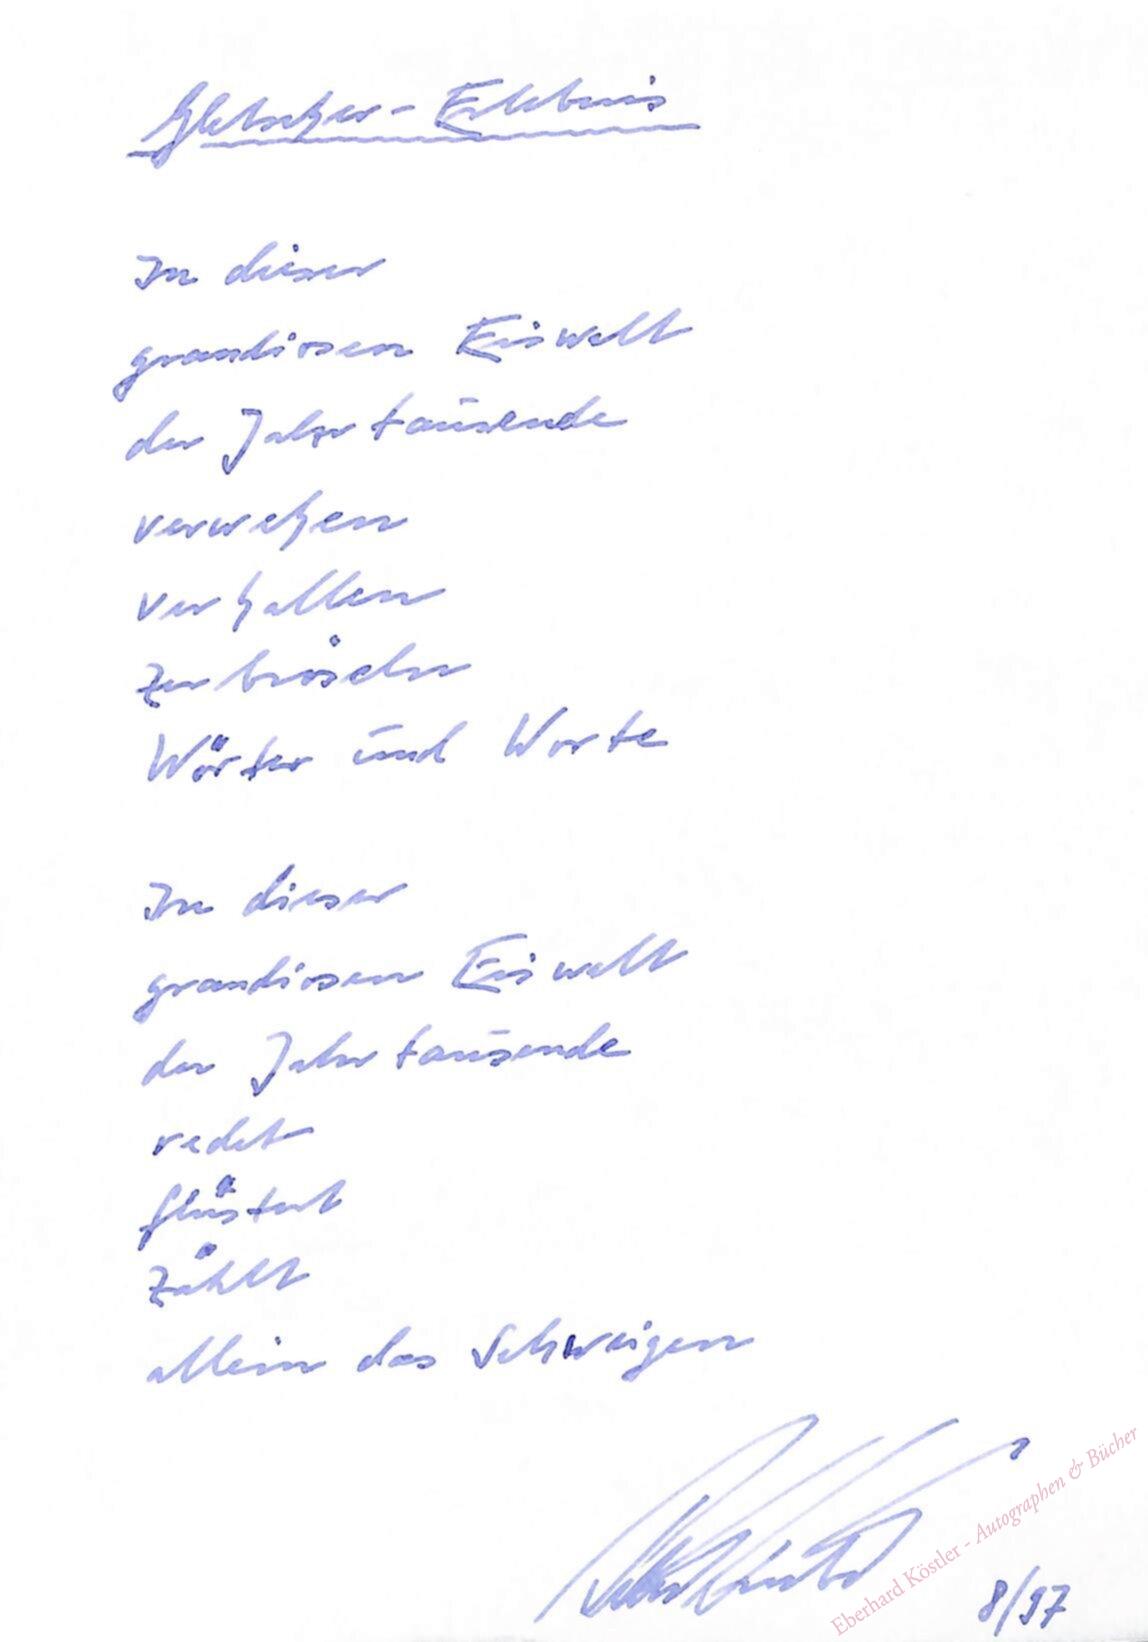 Gletscher-Erlebnis
In dieser
grandiosen Eiswelt
der Jahrtausende
verwehen
verhallen
zerbröseln
Wörter und Worte
In dieser
grandiosen Eiswelt
der Jahrtausende
redet
flüstert
zählt
allein das Schweigen
8/97
Eberhard Köstler - Autographen & Bücher